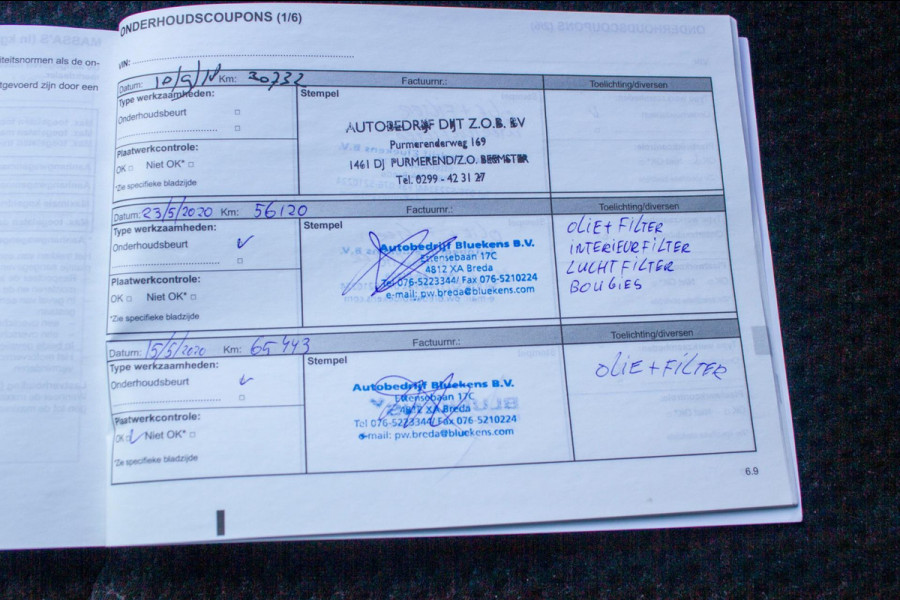 ONDERHOUDSCOUPONS (1/6)
iteitsnormen als de on-
tgevoerd zijn door een
VIN:
Datum: Km: 30732 Factuurnr.: Toelichting/diversen
Type werkzaamheden:
Stempel
Onderhoudsbeurt
AUTOBEDRIJF DIJT Z.O.B. BV
Purmerenderweg 169
1461 DJ PURMEREND/Z.O. BEEMSTER
Tel. 0299 - 42 31 27
Plaatwerkcontrole:
OK Niet OK*
*Zie specifieke bladzijde
Datum: 23/5/2020 Km: 56120 Factuurnr.: Toelichting/diversen
Type werkzaamheden:
Stempel
Onderhoudsbeurt
Autobedrijf Bluekens B.V.
Ettensebaan 17C
4812 XA Breda
Tel 076-5223344/ Fax 076-5210224
e-mail: pw.breda@bluekens.com
OLIE + FILTER
INTERIEURFILTER
LUCHTFILTER
BOUGIES
Plaatwerkcontrole:
OK Niet OK*
*Zie specifieke bladzijde
Datum: 15/5/2020 Km: 65443 Factuurnr.: Toelichting/diversen
Type werkzaamheden:
Stempel
Onderhoudsbeurt
Autobedrijf Bluekens B.V.
Ettensebaan 17C
4812 XA Breda
Tel 076-5223344/ Fax 076-5210224
e-mail: pw.breda@bluekens.com
OLIE + FILTER
Plaatwerkcontrole:
OK Niet OK*
*Zie specifieke bladzijde
6.9